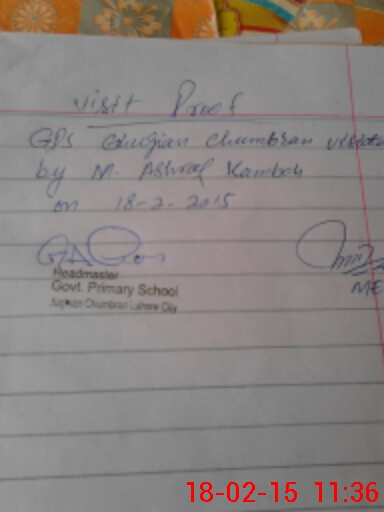 Visit Proof
GPS Ghugian Chumbran visited
by M. Ashraf Kamboh
on 18-2-2015
Headmaster
Govt. Primary School
Jugian Chumbran Lahore City
ME
18-02-15 11:36